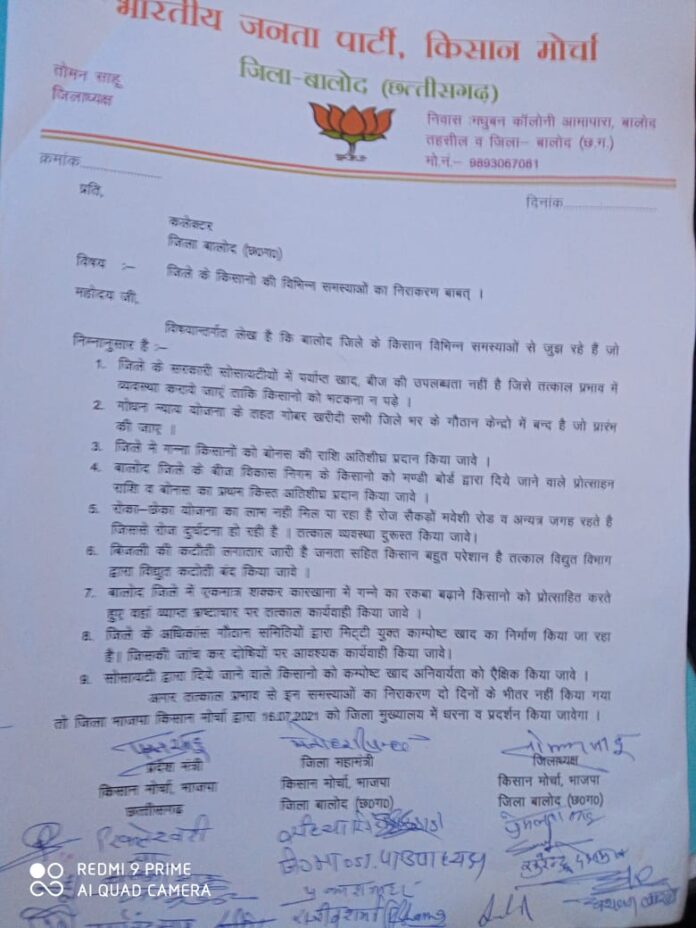 भारतीय जनता पार्टी, किसान मोर्चा
जिला-बालोद (छत्तीसगढ़)
तोमन साहू
जिलाध्यक्ष
निवास :मधुबन कॉलोनी आमापारा, बालोद
तहसील व जिला- बालोद (छ.ग.)
मो.नं.- 9893067061
क्रमांक....................
दिनांक.......................
प्रति,
कलेक्टर
जिला बालोद (छ०ग०)
विषय :- जिले के किसानो की विभिन्न समस्याओं का निराकरण बाबत् ।
महोदय जी,
विषयान्तर्गत लेख है कि बालोद जिले के किसान विभिन्न समस्याओं से जुझ रहे है जो
निम्नानुसार है :-
1. जिले के सरकारी सोसायटीयो में पर्याप्त खाद, बीज की उपलब्धता नहीं है जिसे तत्काल प्रभाव में
व्यवस्था कराये जाएं ताकि किसानो को भटकना न पड़े ।
2. गोधन न्याय योजना के तहत गोबर खरीदी सभी जिले भर के गौठान केन्द्रो में बन्द है जो प्रारंभ
की जाए ॥
3. जिले मे गन्ना किसानों को बोनस की राशि अतिशीघ्र प्रदान किया जावे ।
4. बालोद जिले के बीज विकास निगम के किसानो को मण्डी बोर्ड द्वारा दिये जाने वाले प्रोत्साहन
राशि व बोनस का प्रथम किस्त अतिशीघ्र प्रदान किया जावे ।
5. रोका-छेका योजना का लाभ नही मिल पा रहा है रोज सैकड़ों मवेशी रोड व अन्यत्र जगह रहते है
जिससे रोज दुर्घटना हो रही है । तत्काल व्यवस्था दुरूस्त किया जावे।
6. बिजली की कटौती लगातार जारी है जनता सहित किसान बहुत परेशान है तत्काल विद्युत विभाग
द्वारा विद्युत कटोती बंद किया जावे ।
7. बालोद जिले में एकमात्र शक्कर कारखाना में गन्ने का रकबा बढ़ाने किसानो को प्रोत्साहित करते
हुए वहां व्याप्त भ्रष्टाचार पर तत्काल कार्यवाही किया जावे ।
8. जिले के अधिकांस गौठान समितियों द्वारा मिट्टी युक्त काम्पोष्ट खाद का निर्माण किया जा रहा
है। जिसकी जांच कर दोषियों पर आवश्यक कार्यवाही किया जावे।
9. सोसायटी द्वारा दिये जाने वाले किसानो को कम्पोष्ट खाद अनिवार्यता को ऐक्षिक किया जावे ।
अगर तत्काल प्रभाव से इन समस्याओं का निराकरण दो दिनों के भीतर नहीं किया गया
तो जिला भाजपा किसान मोर्चा द्वारा 16.07.2021 को जिला मुख्यालय में धरना व प्रदर्शन किया जावेगा ।
प्रदेश मंत्री
किसान मोर्चा, भाजपा
छत्तीसगढ़
जिला महामंत्री
किसान मोर्चा, भाजपा
जिला बालोद (छ०ग०)
जिलाध्यक्ष
किसान मोर्चा, भाजपा
जिला बालोद (छ०ग०)
REDMI 9 PRIME
AI QUAD CAMERA